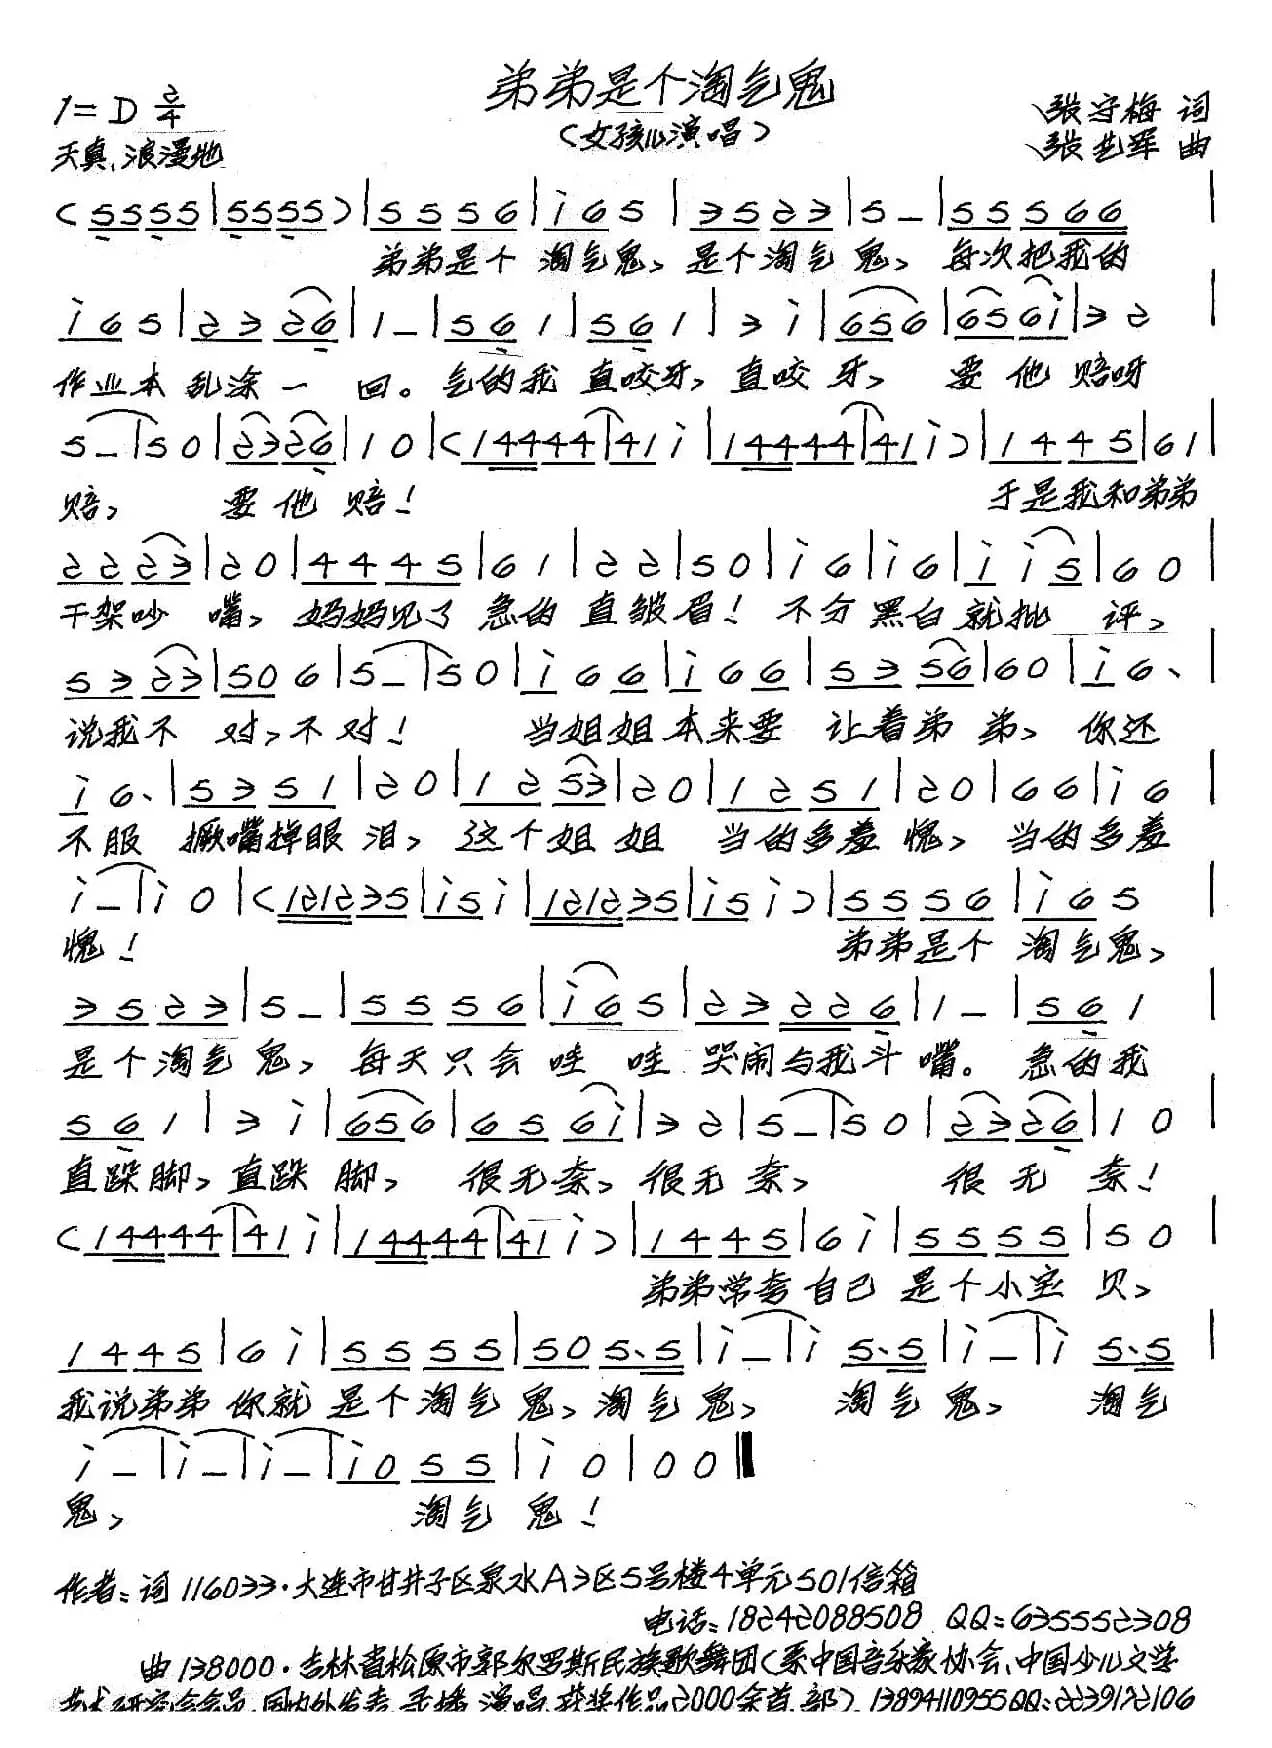 弟弟是个淘气鬼
1=D 2/4
(女孩儿演唱)
张守梅 词
天真、浪漫地
张艺军 曲
(5555|5555)|5556|i65|3523|5–|55566|
弟弟是个淘气鬼、是个淘气鬼、每次把我的
i65|2326|1–|561|561|3i|656|656i|32|
作业本乱涂一回。气的我直咬牙,直咬牙、要他赔呀
5–|50|2326|10|(14444|41i|14444|41i)|1445|61|
赔, 要他赔! 于是我和弟弟
2223|20|4445|61|22|50|i6|i6|ii5|60|
干架吵嘴,妈妈见了急的直皱眉!不分黑白就批评,
5323|506|5–|50|i66|i66|5356|60|i6、|
说我不对,不对! 当姐姐本来要让着弟弟、你还
i6、|5351|20|1253|20|1251|20|66|i6|
不服撅嘴掉眼泪,这个姐姐当的多羞愧,当的多羞
i–|i0|(121235|i5i|121235|i5i)|5556|i65|
愧! 弟弟是个淘气鬼,
3523|5–|5556|i65|23226|1–|561|
是个淘气鬼,每天只会哇哇哭闹与我斗嘴。急的我
561|3i|656|656i|32|5–|50|2326|10|
直跺脚,直跺脚,很无奈,很无奈,很无奈!
(14444|41i|14444|41i)|1445|6i|5555|50|
弟弟常夸自己是个小宝贝,
1445|6i|5555|505、5|i–|i5、5|i–|i5、5|
我说弟弟你就是个淘气鬼、淘气鬼、淘气鬼、淘气
i–|i–|i–|i055|i0|00‖
鬼, 淘气鬼!
作者:词116033·大连市甘井子区泉水A3区5号楼4单元501信箱
电话:18242088508 QQ:635552308
曲138000·吉林省松原市郭尔罗斯民族歌舞团(系中国音乐家协会、中国少儿文学
艺术研究会会员,国内外发表、录播、演唱、获奖作品2000余首、部)13894110955QQ:2239172106